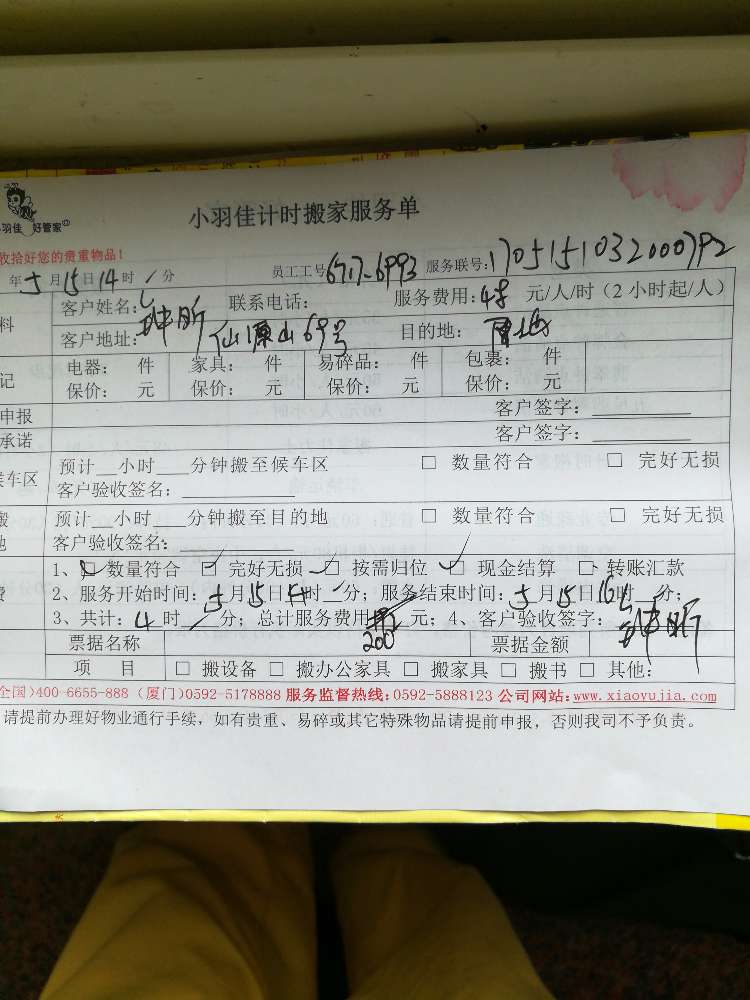 小羽佳 好管家
小羽佳计时搬家服务单
收拾好您的贵重物品!
年5月15日14时/分 员工工号6717-6993 服务联号:1705151032000792
料 客户姓名: 联系电话: 服务费用:48 元/人/时(2小时起/人)
客户地址: 仙源山69号 目的地:
记 电器: 件 家具: 件 易碎品: 件 包裹: 件
保价: 元 保价: 元 保价: 元 保价: 元
申报 客户签字:
承诺 客户签字:
候车区 预计__小时___分钟搬至候车区 □ 数量符合 □ 完好无损
客户验收签名:
搬 预计__小时___分钟搬至目的地 □ 数量符合 □ 完好无损
地 客户验收签名:
1、□ 数量符合 □ 完好无损 □ 按需归位 □ 现金结算 □ 转账汇款
费 2、服务开始时间:5月15日14时/分;服务结束时间:5月15日16时__分;
3、共计:4时/分;总计服务费用 200元;4、客户验收签字:
票据名称 票据金额
项 目 □ 搬设备 □ 搬办公家具 □ 搬家具 □ 搬书 □ 其他:
全国)400-6655-888 (厦门)0592-5178888 服务监督热线:0592-5888123 公司网站:www.xiaoyujia.com
请提前办理好物业通行手续,如有贵重、易碎或其它特殊物品请提前申报,否则我司不予负责。